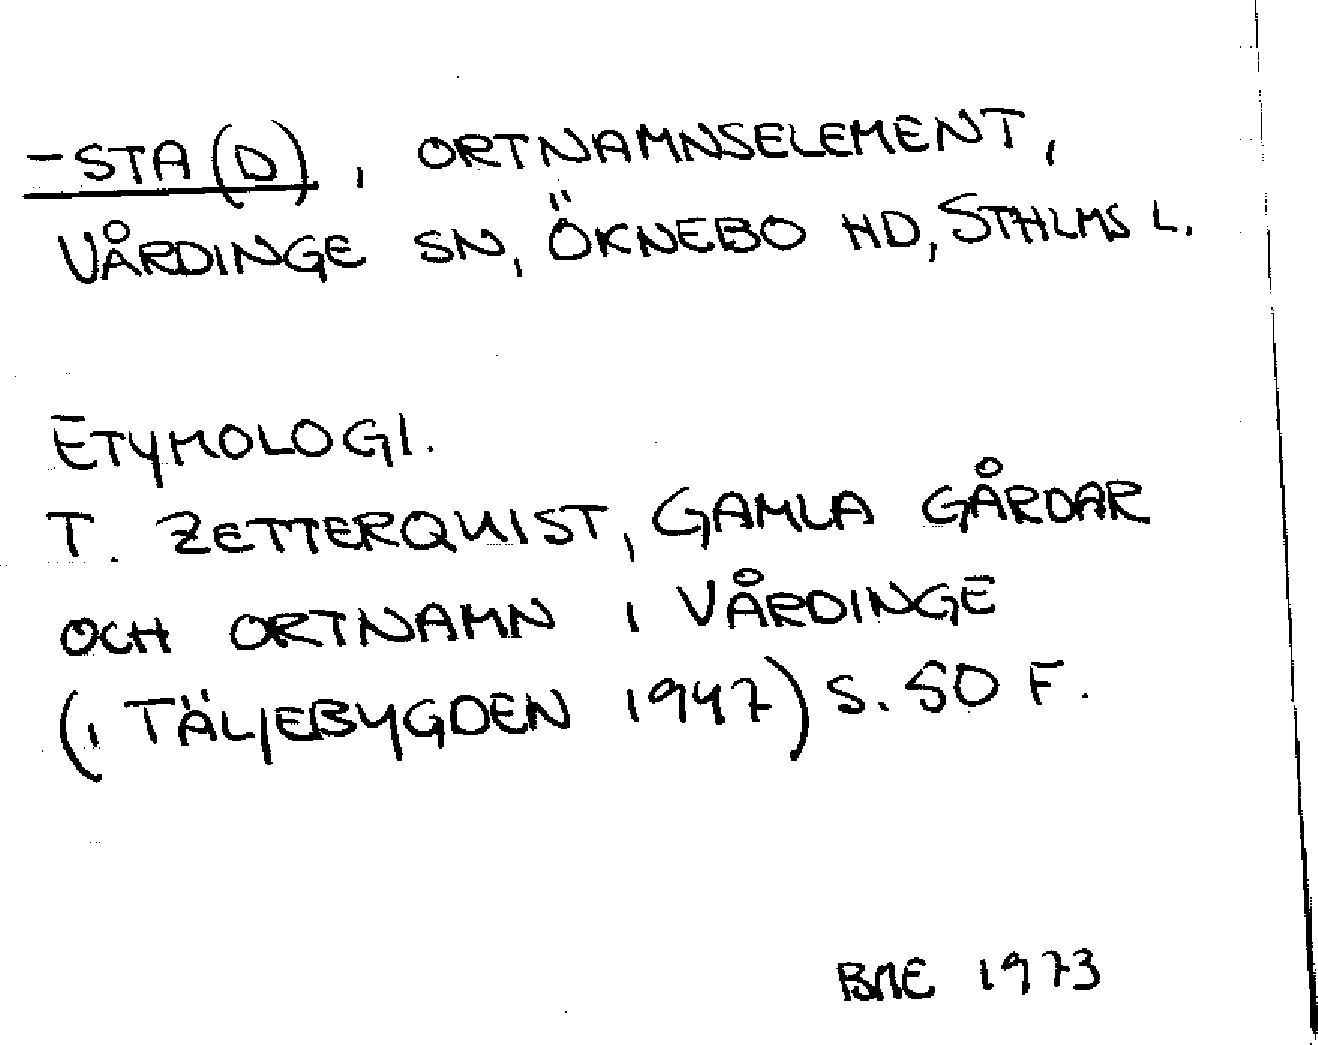 -STA(D), ORTNAMNSELEMENT,
VÅRDINGE SN, ÖKNEBO HD, STHLMS L.
ETYMOLOGI.
T. ZETTERQUIST, GAMLA GÅRDAR
OCH ORTNAMN I VÅRDINGE
(I TÄLJEBYGDEN 1947) S. 50 F.
BME 1973